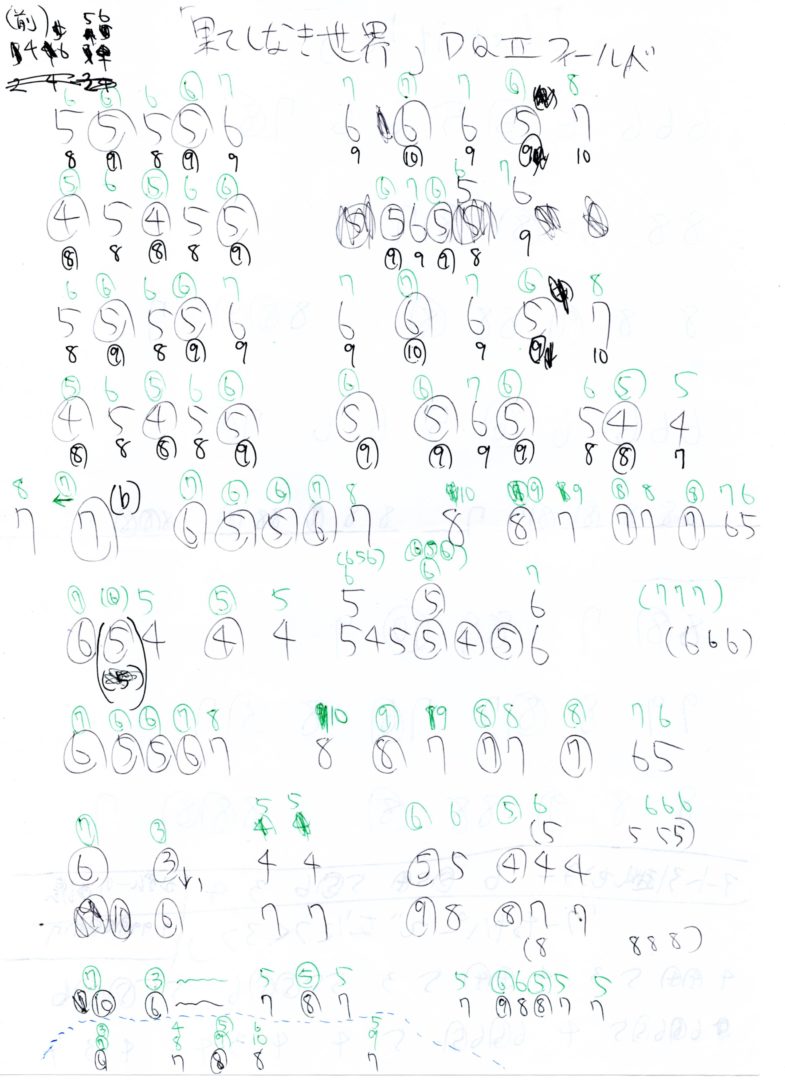 (前) 56
「果てしなき世界」DQⅡフィールド
6 ⑥ 6 ⑥ 7 7 ⑦ 7 ⑥ 8
5 ⑤ 5 ⑤ 6 6 ⑥ 6 ⑤ 7
8 ⑨ 8 ⑨ 9 9 ⑩ 9 ⑨ 10
⑤ 6 ⑤ 6 ⑥ ⑥ 7 ⑥ 6 7
④ 5 ④ 5 ⑤ ⑤ 6 ⑤ 5 6
⑧ 8 ⑧ 8 ⑨ ⑨ 9 ⑨ 8 9
6 ⑥ 6 ⑥ 7 7 ⑦ 7 ⑥ 8
5 ⑤ 5 ⑤ 6 6 ⑥ 6 ⑤ 7
8 ⑨ 8 ⑨ 9 9 ⑩ 9 ⑨ 10
⑤ 6 ⑤ 6 ⑥ ⑥ ⑥ 7 ⑥ 6 ⑤ 5
④ 5 ④ 5 ⑤ ⑤ ⑤ 6 ⑤ 5 ④ 4
⑧ 8 ⑧ 8 ⑨ ⑨ ⑨ 9 ⑨ 8 ⑧ 7
8 ← ⑦ ⑦ ⑥ ⑥ ⑦ 8 10 ⑨ 9 ⑧ 8 ⑧ 7 6
7 ⑦ (b) ⑥ ⑤ ⑤ ⑥ 7 8 ⑧ 7 ⑦ 7 ⑦ 6 5
(6 5 6) (⑥ ⑤ ⑥)
⑦ (⑥) 5 ⑤ 5 6 ⑥ 7 (7 7 7)
5 ⑤ 6
⑥ (⑤) 4 ④ 4 5 4 5 ⑤ ④ ⑤ 6 (6 6 6)
⑦ ⑥ ⑥ ⑦ 8 10 ⑨ 9 ⑧ 8 ⑧ 7 6
⑥ ⑤ ⑤ ⑥ 7 8 ⑧ 7 ⑦ 7 ⑦ 6 5
⑦ ③ 5 5 ⑥ 6 ⑤ 6 6 6 6
(5 5 5 5)
⑥ ③ 4 4 ⑤ 5 ④ 4 4
⑩ ⑥ 7 7 ⑨ 8 ⑧ 7 7
(8 8 8 8)
⑦ ③ 5 ⑤ 5 5 ⑥ 6 ⑤ 5 5
⑩ ⑥ 7 ⑧ 7 7 ⑨ 8 ⑧ 7 7
③ 4 ⑤ 6 5
⑦ 8 ⑨ 10 9
⑥ 7 ⑧ 8 7